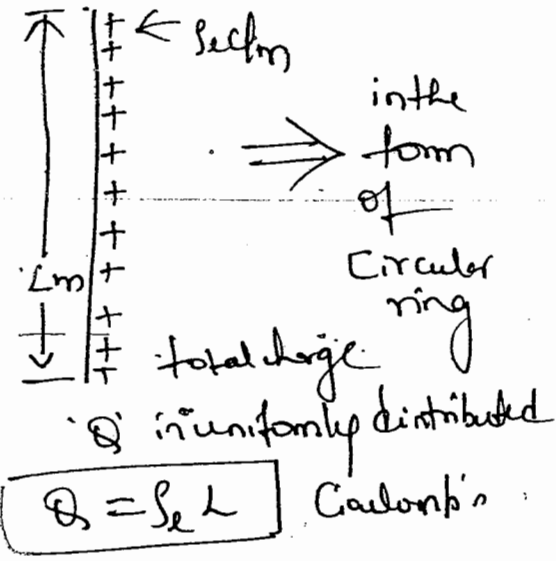 + ← ρₑ C/m
+
+
+
+
+
+
+
+
+
+
L m
⇒
in the
form
of
Circular
ring
total charge
'Q' is uniformly distributed
Q = ρₑ L Coulomb's